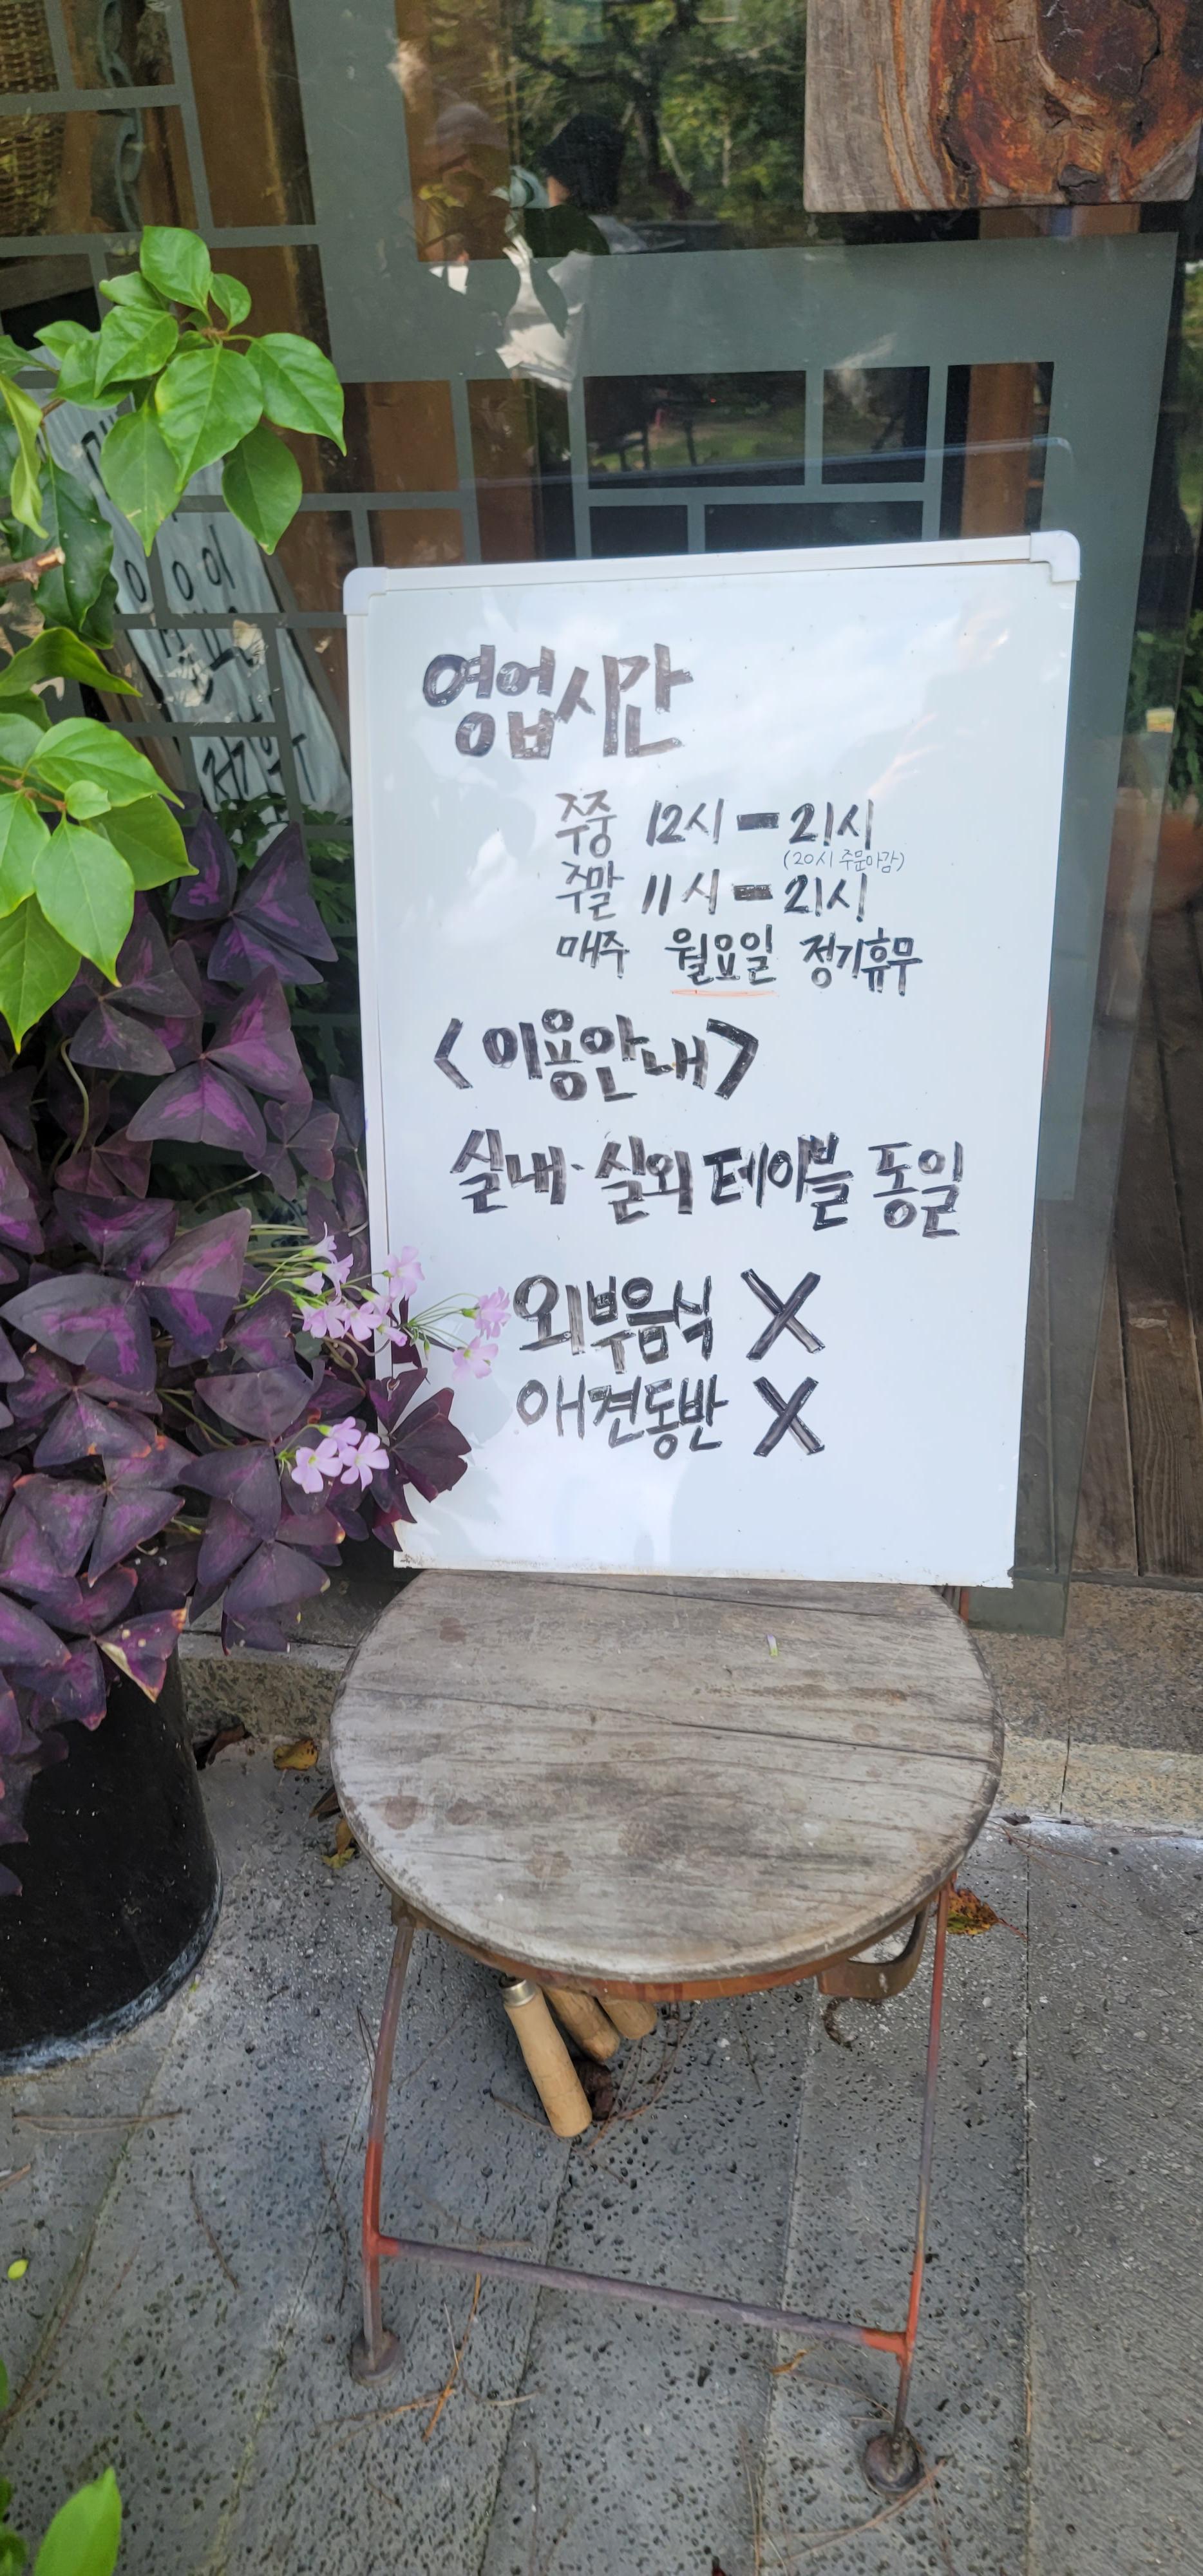 영업시간
주중 12시 - 21시
(20시 주문마감)
주말 11시 - 21시
매주 월요일 정기휴무
<이용안내>
실내·실외 테이블 동일
외부음식 X
애견동반 X